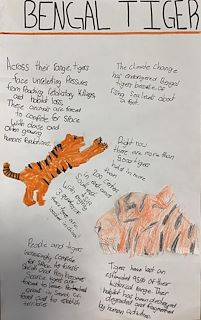 BENGAL TIGER
Across their range, tigers
face unrelenting pressures
from Poaching, retaliatory killings,
and habitat loss.
These animals are forced
to compete for space
with dense and
often growing
human Populations.
The climate change
has endangered Bengal
tigers because of
rising sea levels about
a foot.
Right now
there are more than
tigers
held in more
than
200 centers
in
and
With
eight
there are
People and tigers
increasingly compete
for space. As forests
Shrink and Prey becomes
Scarce, tigers are
forced to leave Protected
areas in Search of
food and to establish
territories
Tigers have lost an
estimated 95% of their
historical range. Their
habitat has been destroyed
degraded and fragmented
by human activities.